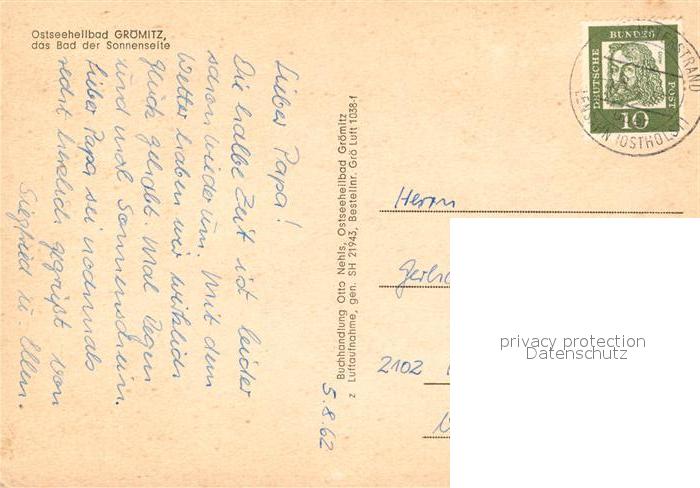 Ostseeheilbad GRÖMITZ,
das Bad der Sonnenseite
Lieber Papa!
Die halbe Zeit ist leider
schon wieder um. Mit dem
Wetter haben wir wirklich
Glück gehabt. Mal Regen
und mal Sonnenschein.
Lieber Papa sei nochmals
recht herzlich gegrüßt von
Siegfried u. Ellen.
5.8.62
Buchhandlung Otto Nehls, Ostseeheilbad Grömitz
z Luftaufnahme, gen. SH 21943, Bestellnr. Grö Luft 1038-f
DEUTSCHE BUNDES POST
10
Herrn
2102
privacy protection
Datenschutz